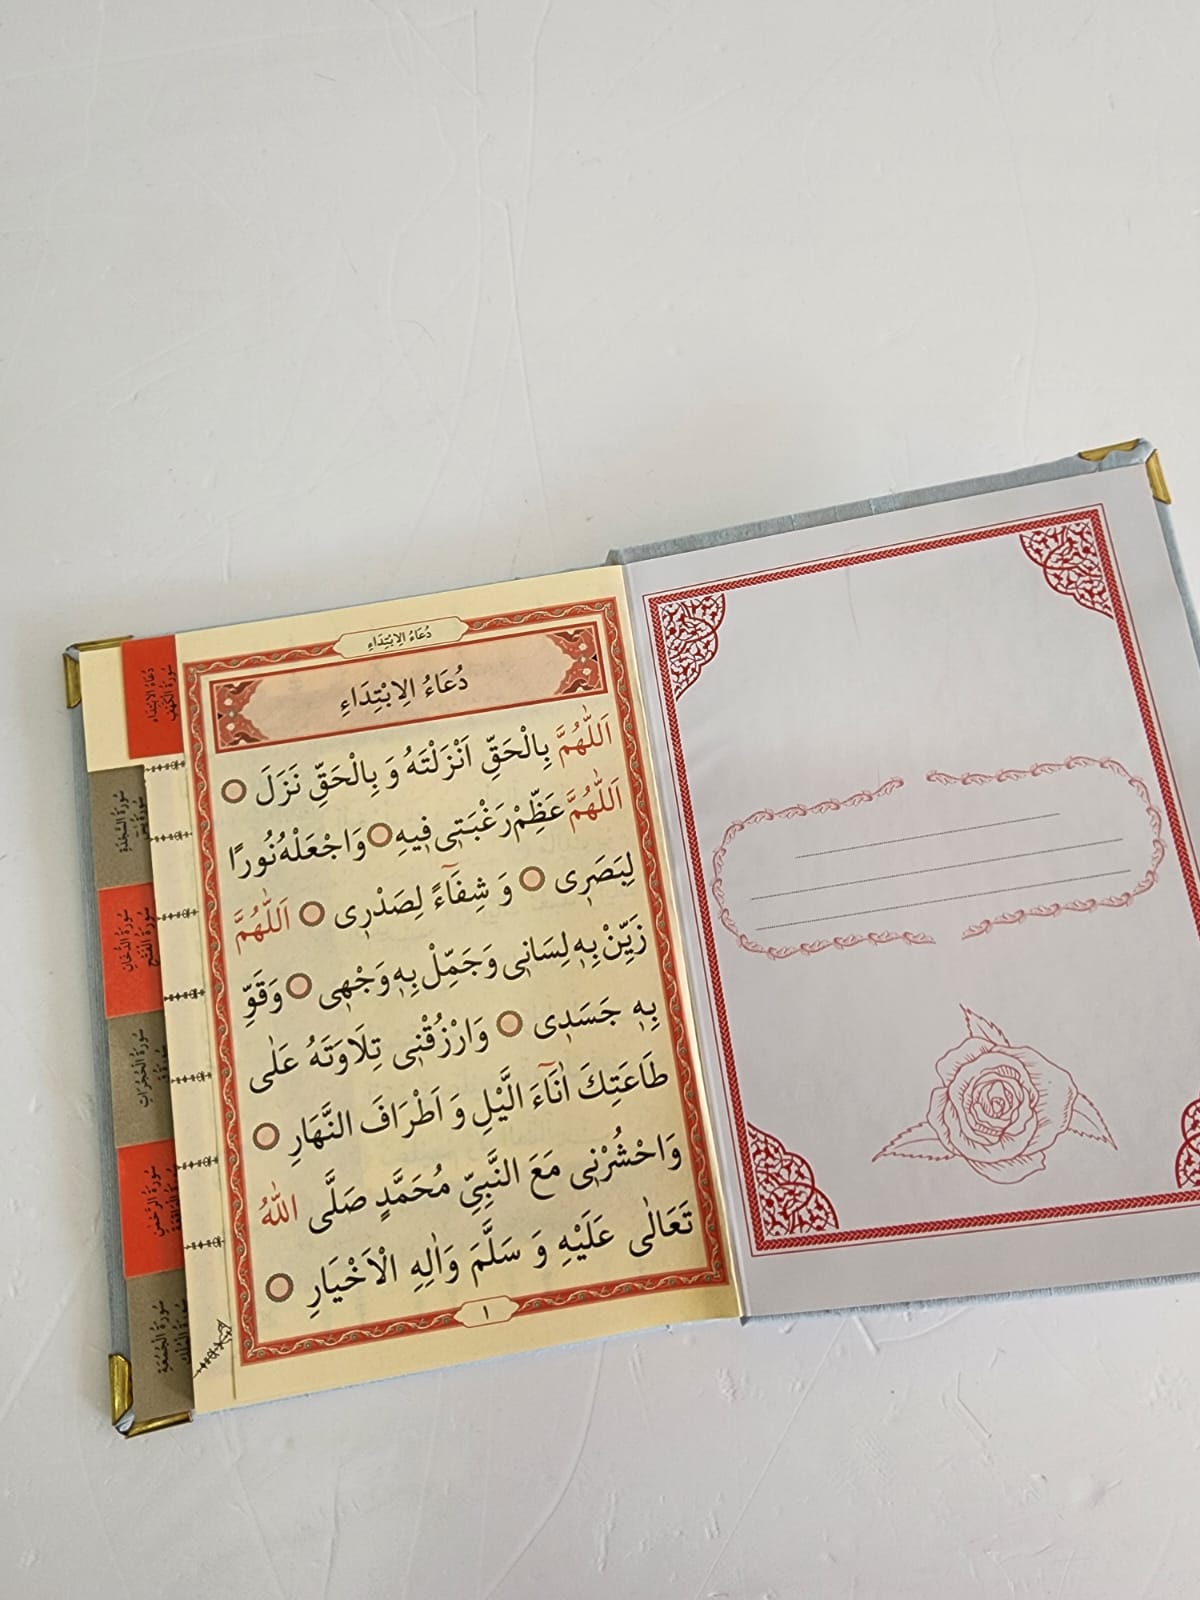 دُعَاءُ الِابْتِدَاءِ
دُعَاءُ الِابْتِدَاءِ
اَللّٰهُمَّ بِالْحَقِّ اَنْزَلْتَهُ وَ بِالْحَقِّ نَزَلَ
اَللّٰهُمَّ عَظِّمْ رَغْبَتِى فِيهِ وَاجْعَلْهُ نُورًا
لِبَصَرِى وَ شِفَآءً لِصَدْرِى اَللّٰهُمَّ
زَيِّنْ بِهِ لِسَانِى وَجَمِّلْ بِهِ وَجْهِى وَقَوِّ
بِهِ جَسَدِى وَارْزُقْنِى تِلَاوَتَهُ عَلٰى
طَاعَتِكَ اٰنَآءَ الَّيْلِ وَ اَطْرَافَ النَّهَارِ
وَاحْشُرْنِى مَعَ النَّبِيِّ مُحَمَّدٍ صَلَّى اللّٰهُ
تَعَالٰى عَلَيْهِ وَ سَلَّمَ وَاٰلِهِ الْاَخْيَارِ
١
دُعَاءُ الِابْتِدَاءِ
سُورَةُ الْكَهْفِ
سُورَةُ السَّجْدَةِ
سُورَةُ الدُّخَانِ
سُورَةُ الْفَتْحِ
سُورَةُ الْحُجُرَاتِ
سُورَةُ الرَّحْمٰنِ
سُورَةُ الْجُمُعَةِ